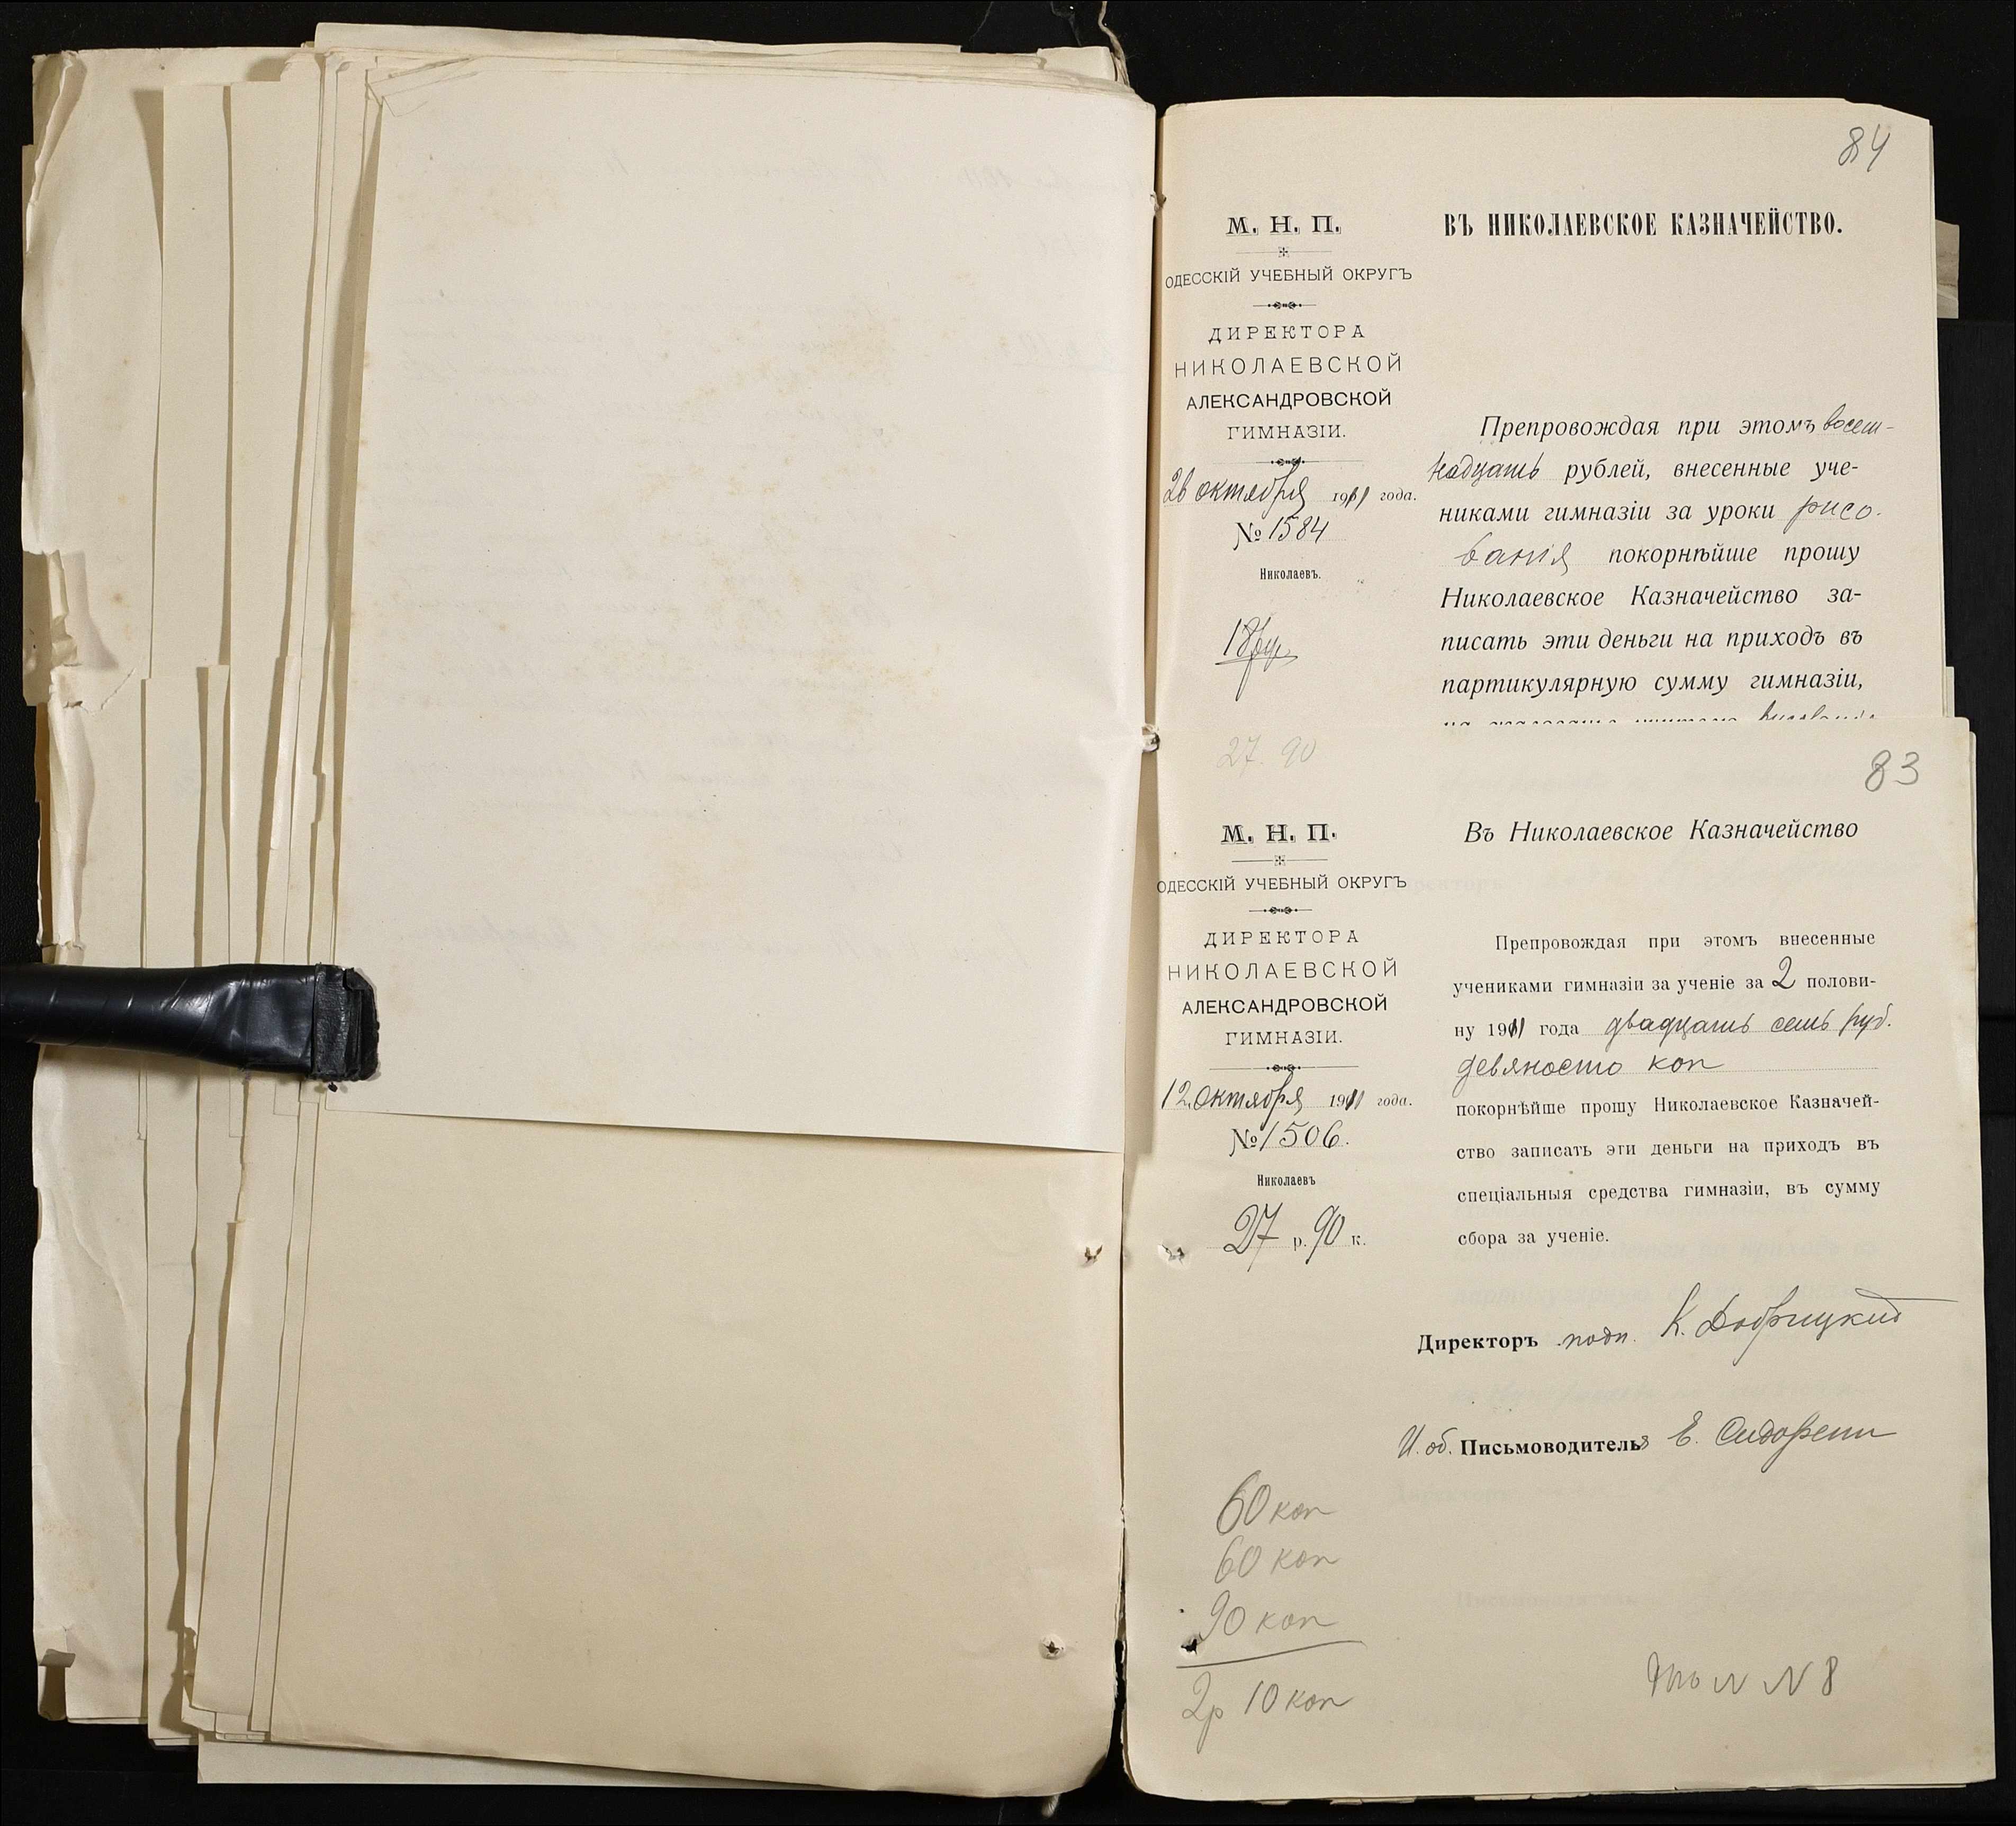 84
М. Н. П.
ОДЕССКІЙ УЧЕБНЫЙ ОКРУГЪ
ДИРЕКТОРА
НИКОЛАЕВСКОЙ
АЛЕКСАНДРОВСКОЙ
ГИМНАЗІИ.
26 октября 1911 года.
№ 1584
Николаевъ.
18 ру.
ВЪ НИКОЛАЕВСКОЕ КАЗНАЧЕЙСТВО.
Препровождая при этомъ восем-
надцать рублей, внесенные уче-
никами гимназіи за уроки рисо-
ванія покорнѣйше прошу
Николаевское Казначейство за-
писать эти деньги на приходъ въ
партикулярную сумму гимназіи,
27. 90
83
М. Н. П.
ОДЕССКІЙ УЧЕБНЫЙ ОКРУГЪ
ДИРЕКТОРА
НИКОЛАЕВСКОЙ
АЛЕКСАНДРОВСКОЙ
ГИМНАЗІИ.
12 октября 1911 года.
№ 1506.
Николаевъ
27 р. 90 к.
Въ Николаевское Казначейство
Препровождая при этомъ внесенные
учениками гимназіи за ученіе за 2 полови-
ну 1911 года двадцать семь руб.
девяносто коп
покорнѣйше прошу Николаевское Казначей-
ство записать эти деньги на приходъ въ
спеціальныя средства гимназіи, въ сумму
сбора за ученіе.
Директоръ подп. К. Добрицкий
И. об. Письмоводителя Е. Сидорени
60 коп
60 коп
90 коп
2р 10 коп
N 8